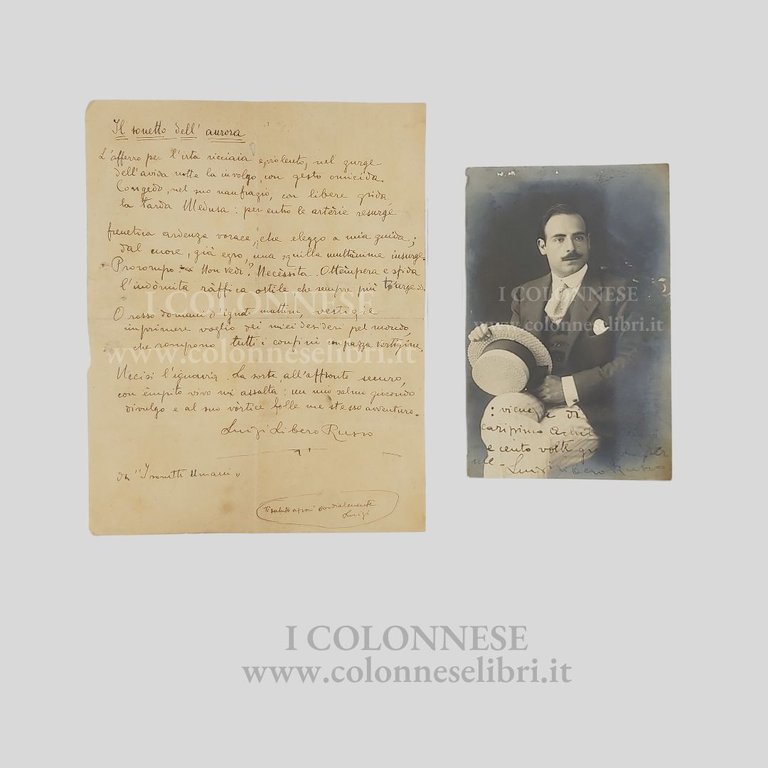 Il sonetto dell'aurora
L'afferro per l'irta ricciaia e, violento, nel gurge
dell'avida notte la involgo, con gesto omicida.
Congedo, nel suo naufragio, con libere grida
la tarda Medusa: per entro le arterie resurge
frenetica ardenza vorace, che eleggo a mia guida;
dal cuore, già egro, una squilla mattinale insurge.
Prorompo: Non vedi? Necessita. Ottempera e sfida
l'indomita raffica ostile che sempre più turge
O rosso domani d'ignoti mattini, vestigie
imprimere voglio dei miei desideri pel mondo,
che rompono tutti i confini con pazza vertigine.
Uccisi l'ignavia. La sorte, all'affronto securo,
con émpito vivo mi assalta: un mio salmo giocondo
divulgo e al suo vortice folle me stesso
Luigi Libero Russo
da "I sonetti umani"
cordialmente
Luigi
: vicenda di
carissimo
e cento volte
Luigi Libero Russo
I COLONNESE
www.colonneselibri.it
I COLONNESE
www.colonneselibri.it
I COLONNESE
www.colonneselibri.it